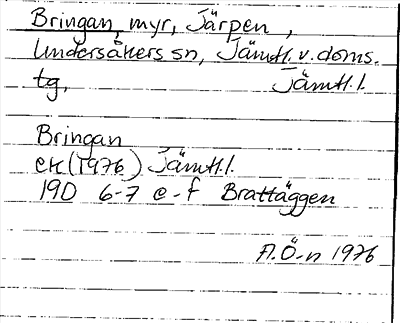 Bringan, myr, Järpen,
Undersåkers sn, Jämtl. v. doms.
tg, Jämtl. l.
Bringan
ek (1976) Jämtl. l.
19D 6-7 e-f Brattäggen
A.Ö-n 1976